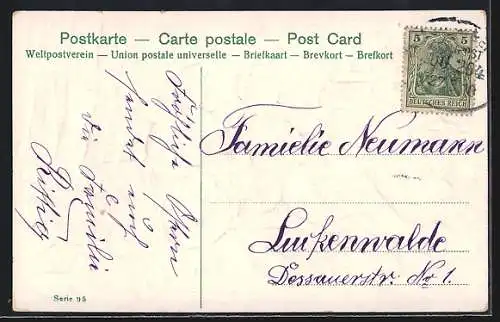 Postkarte — Carte postale — Post Card
Weltpostverein — Union postale universelle — Briefkaart — Brevkort — Brefkort
5 5
DEUTSCHES REICH
Fröhliche Ostern
sendet euch
die Familie
Familie Neumann
Luckenwalde
Dessauerstr. No 1.
Serie 95